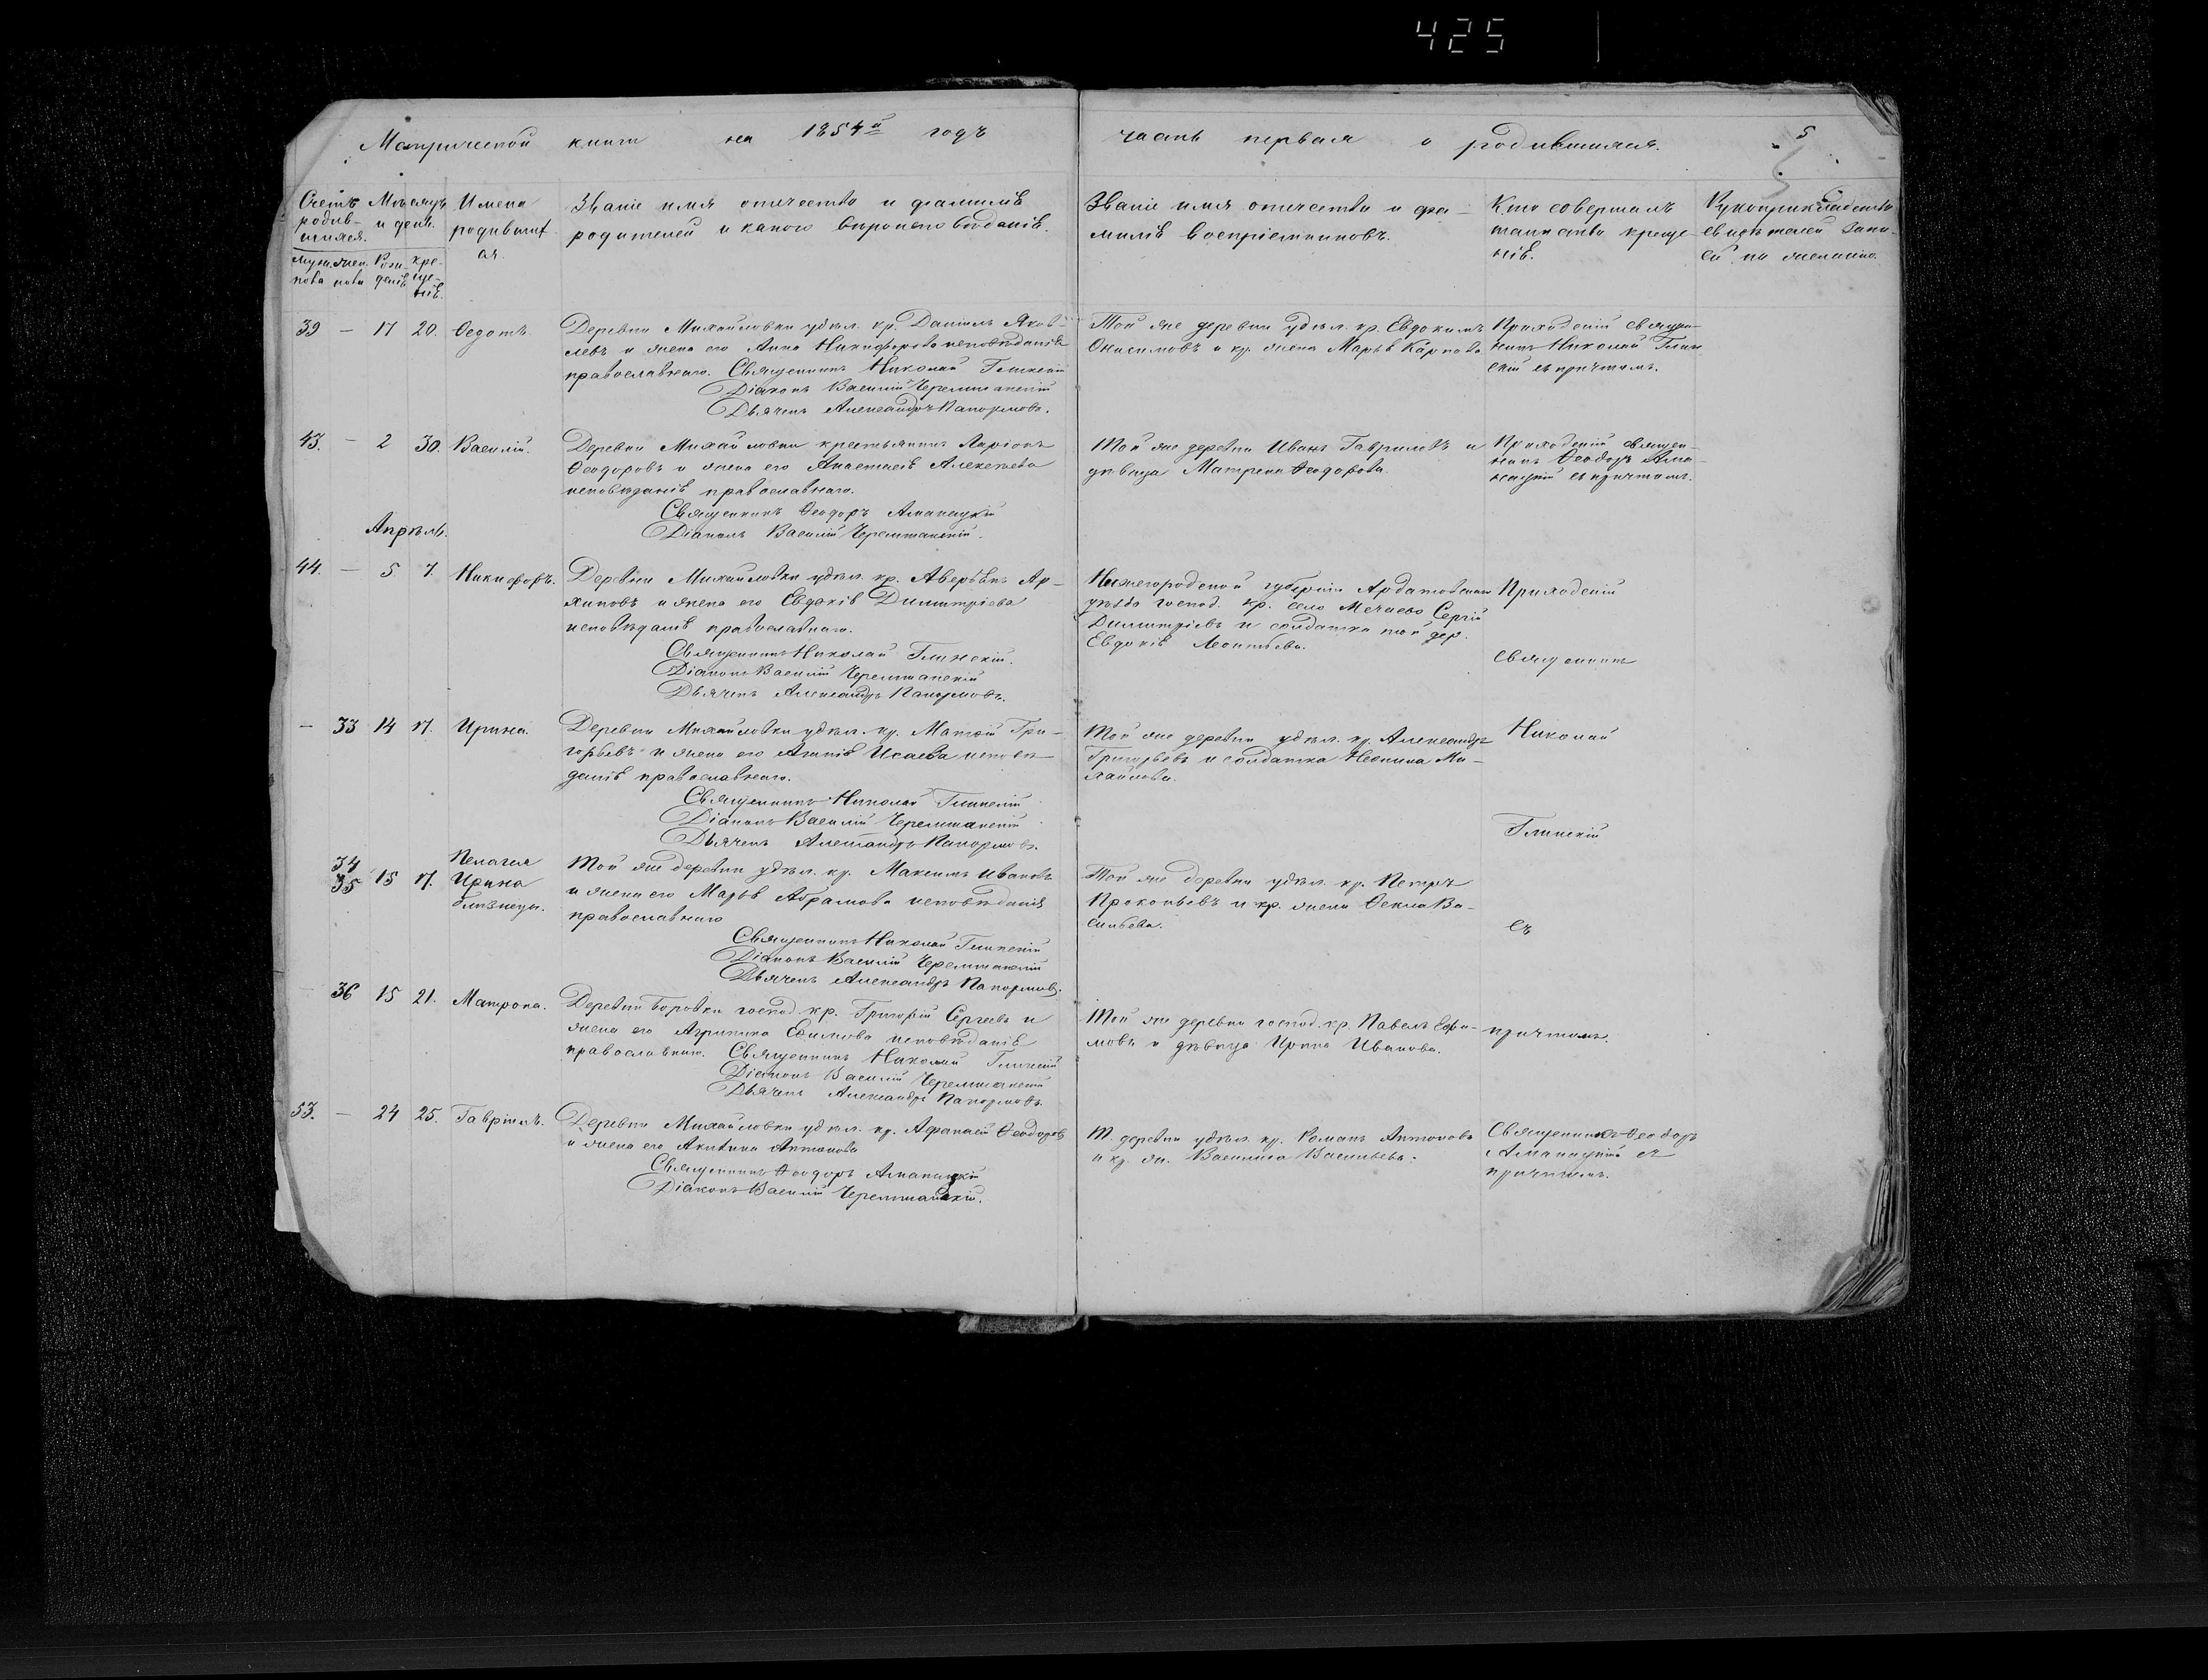 425
Метрической книги на 1854й годъ
часть первая о родившихся.
5
Счетъ родив-шихся.
Мужеска пола
женска пола
Мѣсяцъ и день.
Рожденія
крещенія.
Имена родившихся.
Званіе имя отчество и фамилія
родителей и какого вѣроисповѣданія.
Званіе имя отчество и фа-
милія воспріемниковъ.
Кто совершалъ
таинство креще-
нія.
Рукоприкладство
свидѣтелей запи-
си по желанію.
39 — 17 20. Ѳедотъ.
Деревни Михайловки удѣл. кр. Даніилъ Яков-
левъ и жена его Анна Никифорова исповѣданія
православнаго. Священникъ Николай Глинскій
Діаконъ Василій Черемшанскій
Дьячекъ Александръ Панормовъ.
Той же деревни удѣл. кр. Евдокимъ
Онисимовъ и кр. жена Марья Карпова
Приходскій священ-
никъ Николай Глин
скій съ причтомъ.
43. — 2 30. Василій.
Деревни Михайловки крестьянинъ Ларіонъ
Ѳеодоровъ и жена его Анастасія Алексѣева
исповѣданія православнаго.
Священникъ Ѳеодоръ Аманацкій
Діаконъ Василій Черемшанскій.
Той же деревни Иванъ Гавриловъ и
дѣвица Матрена Ѳеодорова.
Приходскій священ-
никъ Ѳеодоръ Ама-
нацкій съ причтомъ.
Апрѣль.
44. — 5 7. Никифоръ.
Деревни Михайловки удѣл. кр. Аверьянъ Ар-
хиповъ и жена его Евдокія Димитріева
исповѣданія православнаго.
Священникъ Николай Глинскій.
Діаконъ Василій Черемшанскій
Дьячекъ Александръ Панормовъ.
Нижегородской губерніи Ардатовскаго
уѣзда господ. кр. село Мечаево Сергій
Димитріевъ и солдатка той дер.
Евдокія Леонтьева.
Приходскій
священникъ
— 33 14 17. Ирина.
Деревни Михайловки удѣл. кр. Матѳій Гри-
горьевъ и жена его Агнія Исаева исповѣ-
данія православнаго.
Священникъ Николай Глинскій
Діаконъ Василій Черемшанскій
Дьячекъ Александръ Панормовъ.
Той же деревни удѣл. кр. Александръ
Григорьевъ и солдатка Неонила Ми-
хайлова.
Николай
Глинскій
34
35 15 17. Пелагея
Ирина
близнецы.
Той же деревни удѣл. кр. Максимъ Ивановъ
и жена его Марья Абрамова исповѣданія
православнаго
Священникъ Николай Глинскій
Діаконъ Василій Черемшанскій
Дьячекъ Александръ Панормовъ.
Той же деревни удѣл. кр. Петръ
Прокопьевъ и кр. жена Ѳекла Ва-
сильева.
съ
36 15 21. Матрона.
Деревни Боровки господ. кр. Григорій Сергѣевъ и
жена его Агрипина Ефимова исповѣданія
православнаго. Священникъ Николай Глинскій
Діаконъ Василій Черемшанскій
Дьячекъ Александръ Панормовъ.
Той же деревни господ. кр. Павелъ Ефи-
мовъ и дѣвица Ирина Иванова.
причтомъ.
53. — 24 25. Гавріилъ.
Деревни Михайловки удѣл. кр. Афанасій Ѳеодоровъ
и жена его Акилина Антонова
Священникъ Ѳеодоръ Аманацкій
Діаконъ Василій Черемшанскій.
Т. деревни удѣл. кр. Романъ Антоновъ
и кр. ж. Василиса Васильева.
Священникъ Ѳеодоръ
Аманацкій съ
причтомъ.